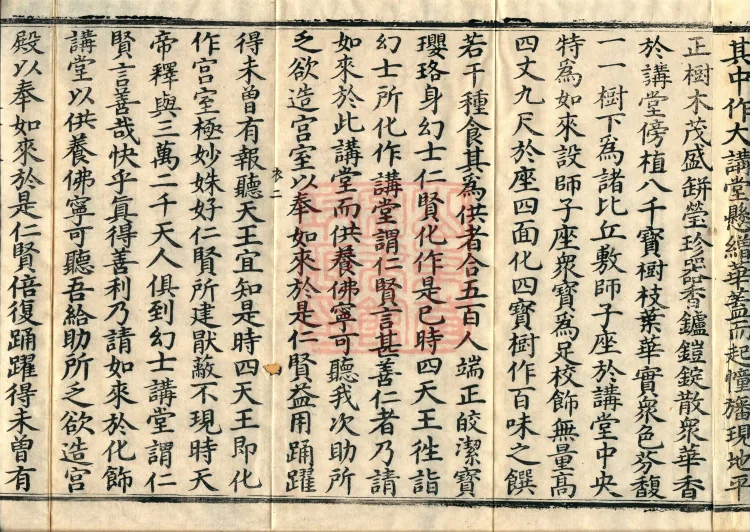 其中作大講堂懸繒華蓋而起幢旛現地平
正樹木茂盛缾瑩珍器香鑪鎧錠散衆華香
於講堂傍植八千寳樹枝葉華實衆色芬馥
一一樹下爲諸比丘敷師子座於講堂中央
特爲如來設師子座衆寳爲足校飾無量高
四丈九尺於座四面化四寳樹作百味之饌
若干種食其爲供者合五百人端正皎潔寳
瓔珞身幻士仁賢化作是已時四天王徃詣
幻士所化作講堂謂仁賢言甚善仁者乃請
如來於此講堂而供養佛寧可聽我次助所
乏欲造宮室以奉如來於是仁賢益用踊躍
衣二
得未曾有報聽天王宜知是時四天王即化
作宮室極妙姝好仁賢所建猒蔽不現時天
帝釋與三萬二千天人俱到幻士講堂謂仁
賢言善哉快乎眞得善利乃請如來於化飾
講堂以供養佛寧可聽吾給助所乏欲造宮
殿以奉如來於是仁賢倍復踊躍得未曾有